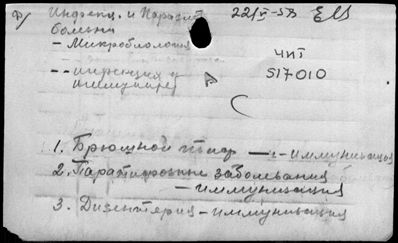 Ф/ Инфекц. и Паразит. 22/V-53
болезни
- Микробиология
чит
-- инфекция и 517010
иммунитет
1. Брюшной тиф — иммунизация
2. Паратифозные заболевания
- иммунизация
3. Дизентерия - иммунизация